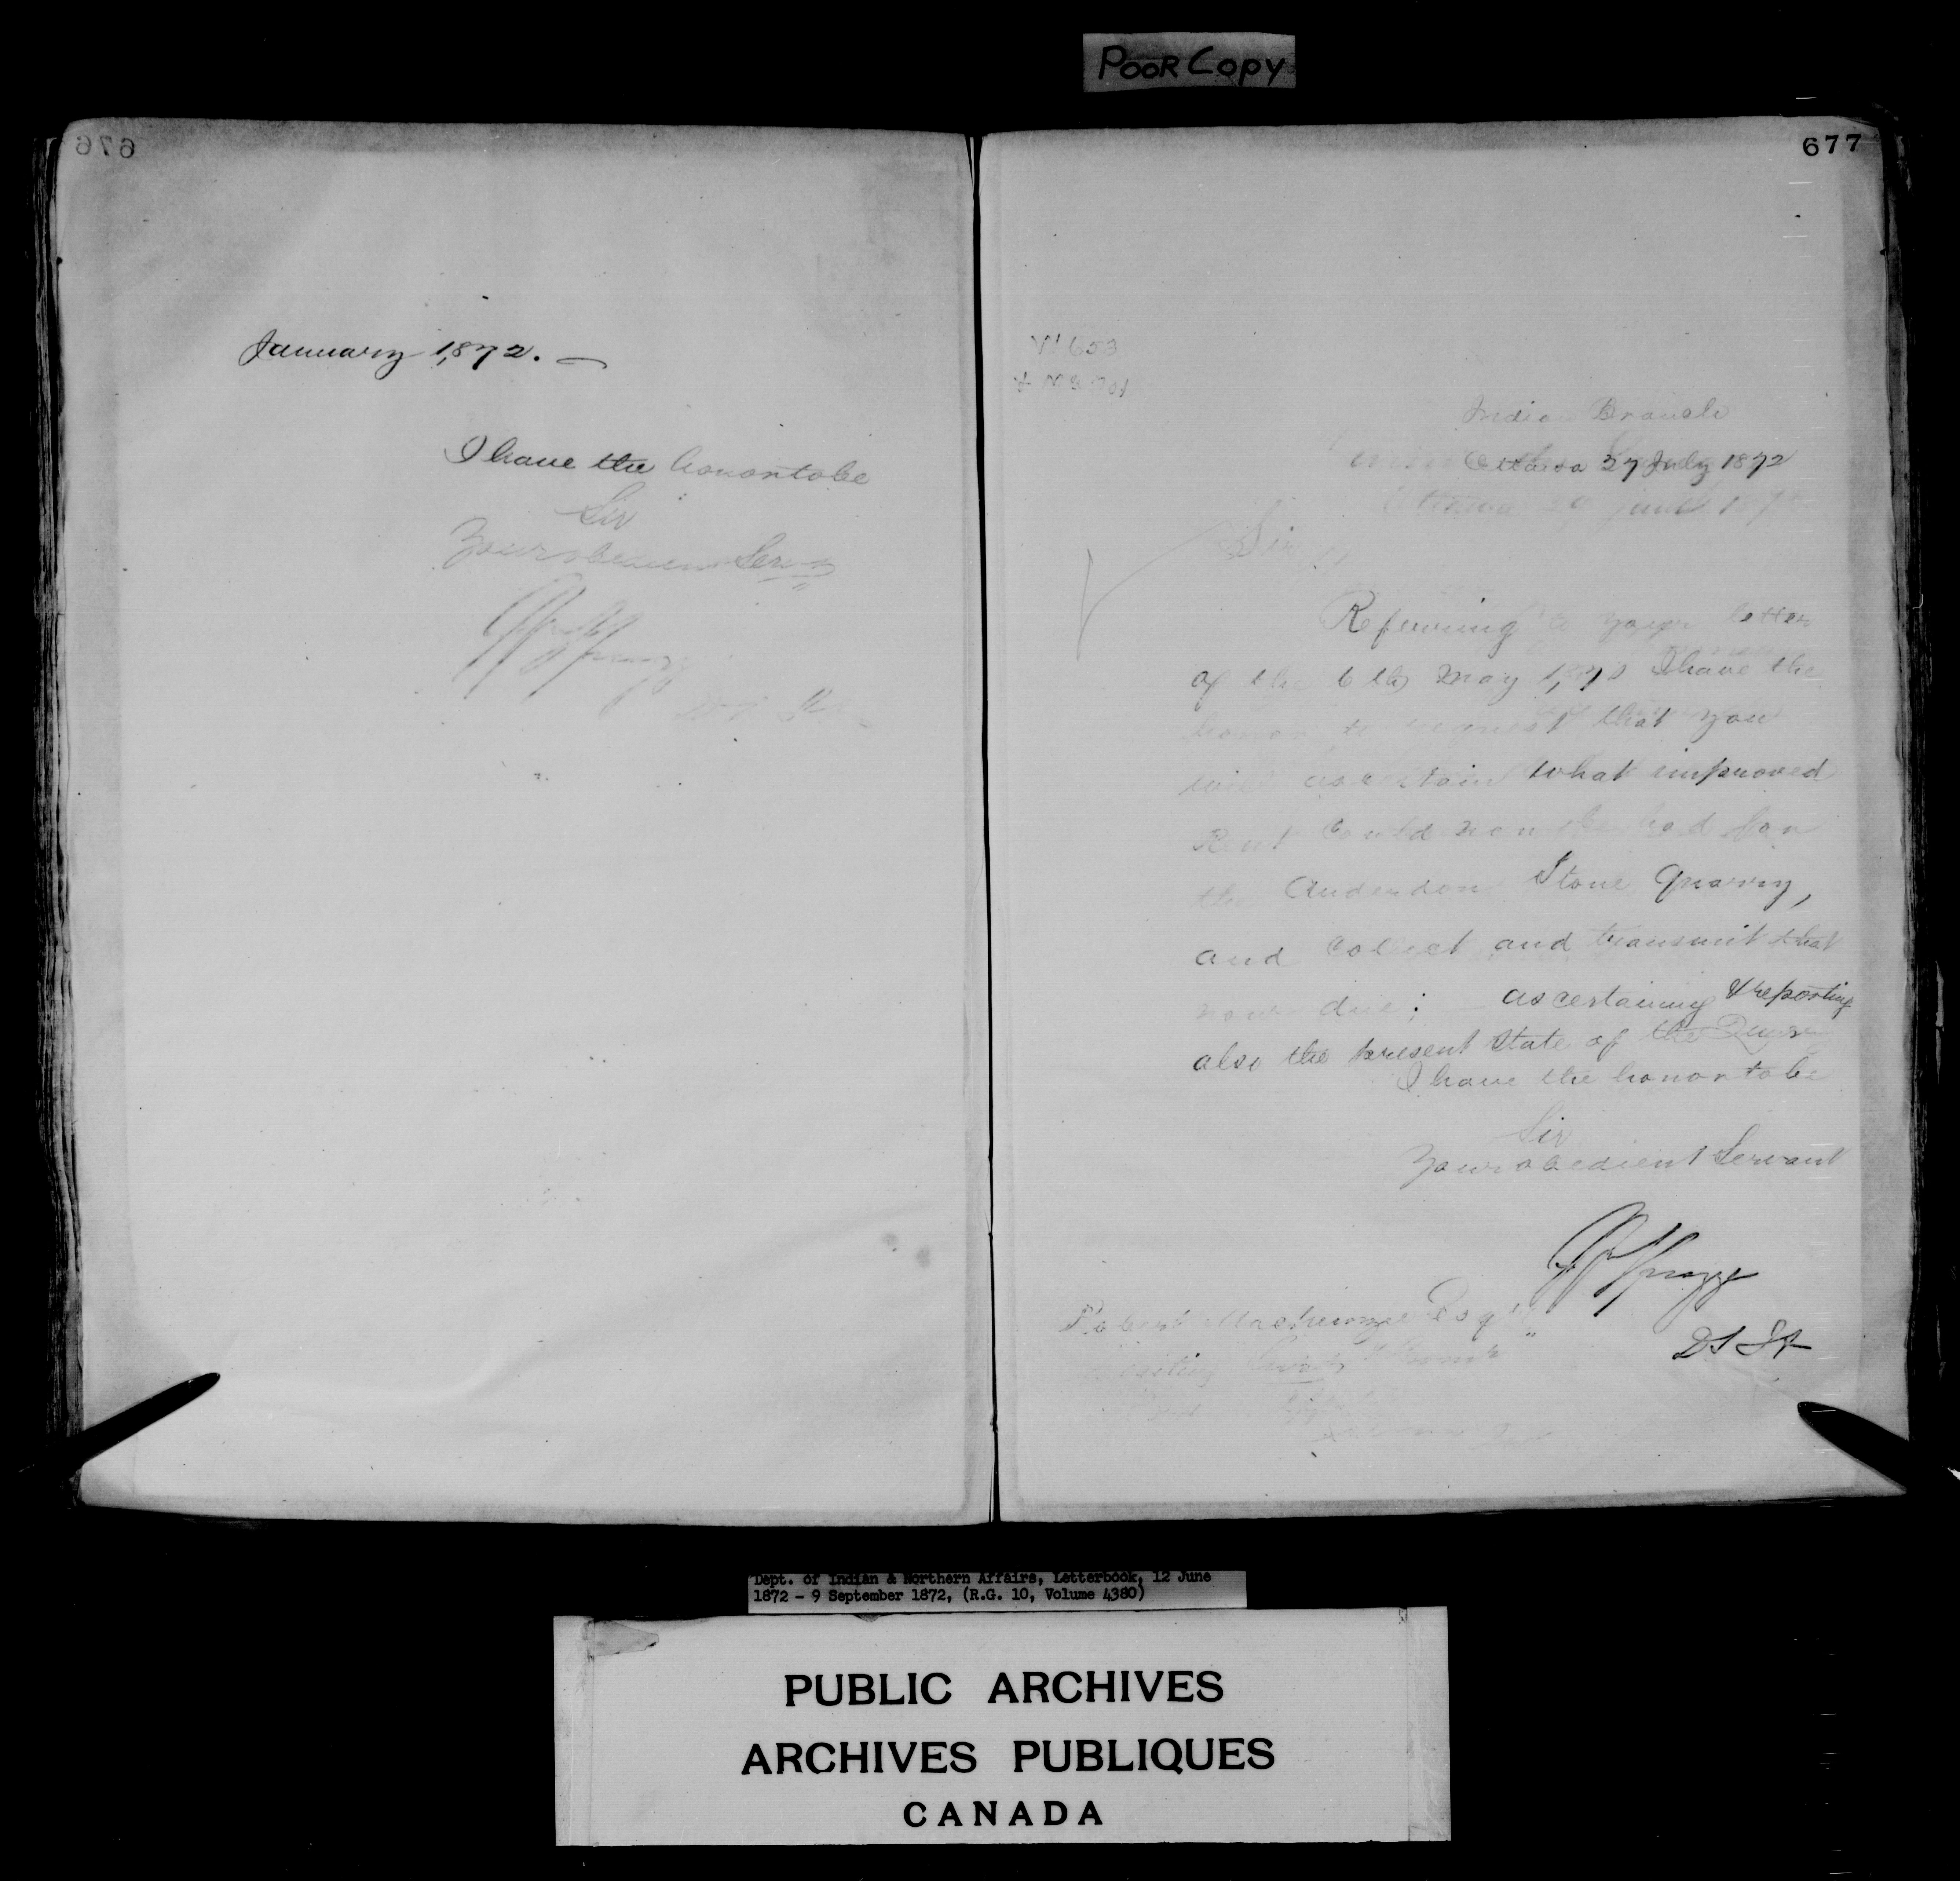 POOR COPY
676
January 1,872. —
I have the honor to be
Sir
Your obedient Servt
677
Indian Branch
Ottawa 27 July 1872
Sir,
Referring to your letter
of the 6th May 1,870 I have the
honor to request that you
will ascertain what improved
Rent could now be had for
the Anderdon Stone Quarry,
and collect and transmit that
now due; — ascertaining & reporting
also the present state of the Quarry
I have the honor to be
Sir
Your obedient Servant
Spragge
D S I A
Robert Mackenzie Esqr
Dept. of Indian & Northern Affairs, Letterbook, 12 June
1872 - 9 September 1872, (R.G. 10, Volume 4380)
PUBLIC ARCHIVES
ARCHIVES PUBLIQUES
CANADA